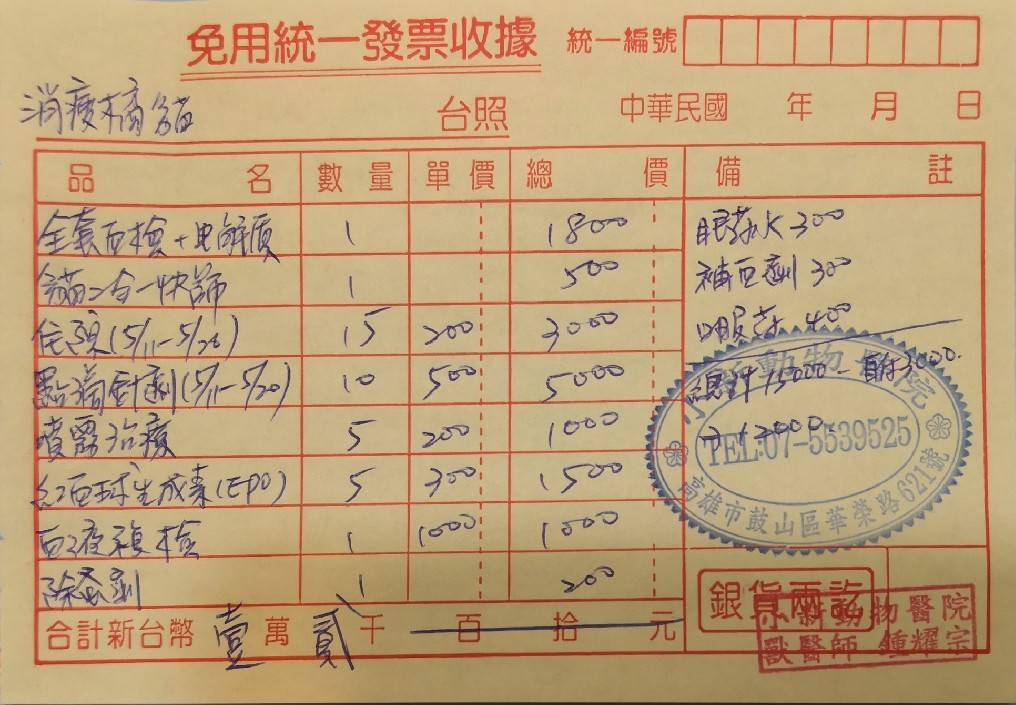 免用統一發票收據 統一編號
消瘦橘貓 台照 中華民國 年 月 日
品名 數量 單價 總價 備註
全套血檢+电解质 1 1800
貓二合一快篩 1 500
住院(5/11-5/26) 15 200 3000
點滴針劑(5/11-5/20) 10 500 5000
噴霧治療 5 200 1000
紅血球生成素(EPO) 5 300 1500
血液複檢 1 1000 1000
除蚤劑 1 200
眼藥水 300
補血劑 300
口服藥 400
總計15000 - 自付3000.
12000
動物 院
TEL:07-5539525
高雄市鼓山區華榮路621號
合計新台幣 壹萬 貳千 百 拾 元
銀貨兩訖
動物醫院
獸醫師 鍾耀宗